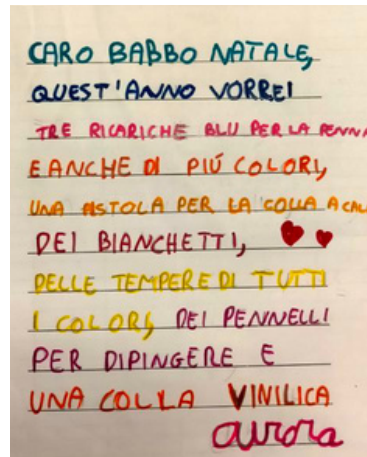 CARO BABBO NATALE,
QUEST'ANNO VORREI
TRE RICARICHE BLU PER LA PENNA
E ANCHE DI PIÚ COLORI,
UNA PISTOLA PER LA COLLA A CAL
DEI BIANCHETTI,
DELLE TEMPERE DI TUTTI
I COLORI, DEI PENNELLI
PER DIPINGERE E
UNA COLLA VINILICA
aurora